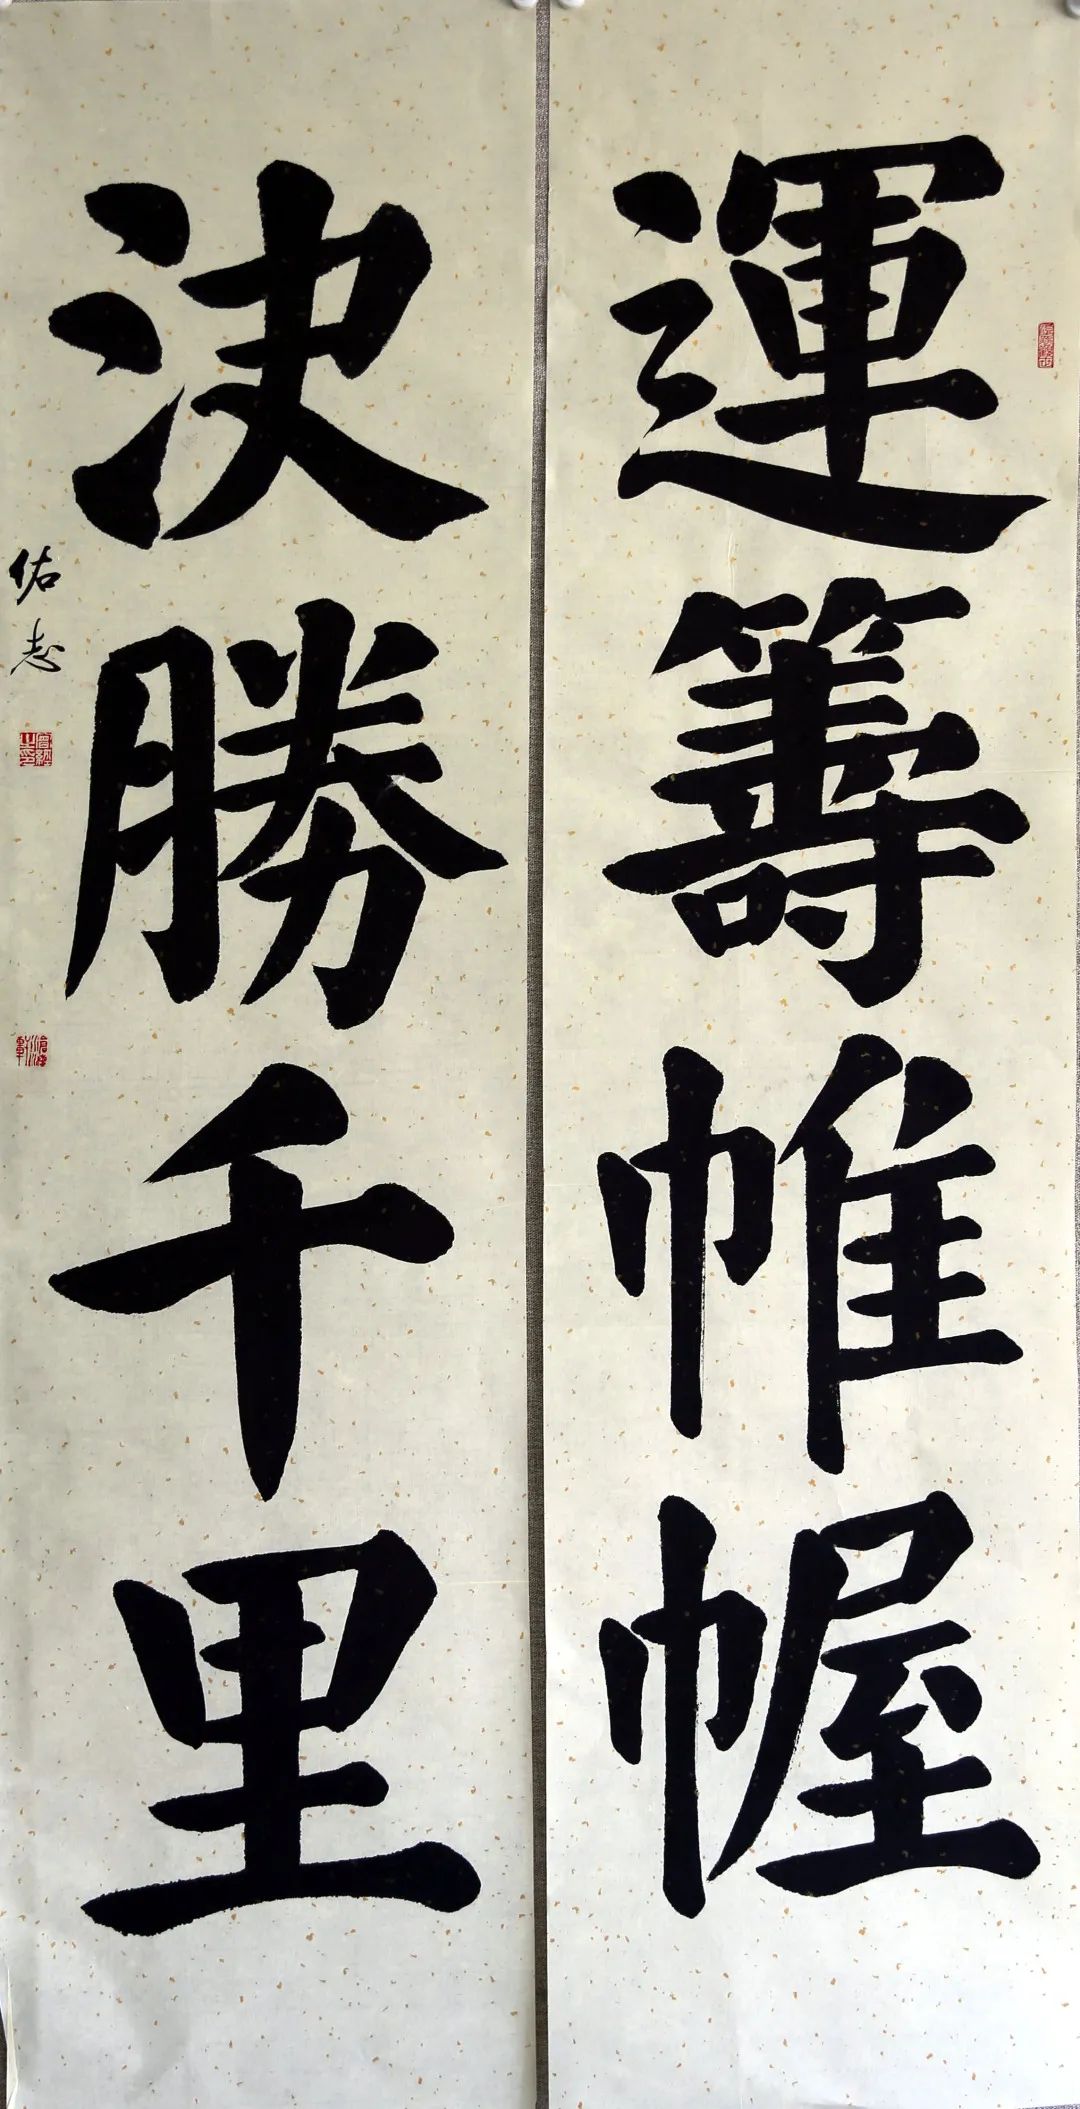 運籌帷幄
決勝千里
佑志